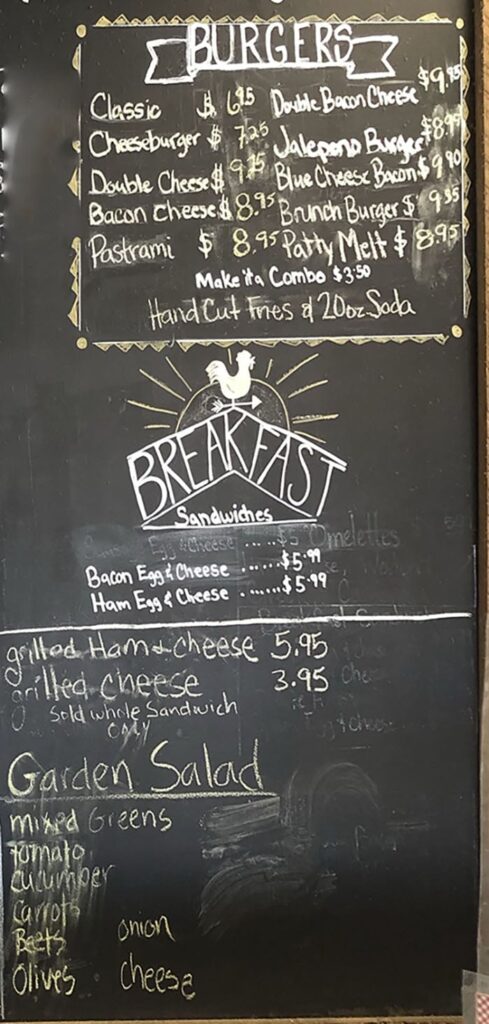 BURGERS
Classic $6.95
Cheeseburger $7.25
Double Cheese $9.25
Bacon Cheese $8.95
Pastrami $8.95
Double Bacon Cheese $9.95
Jalepeno Burger $8.95
Blue Cheese Bacon $9.90
Brunch Burger $9.95
Patty Melt $8.95
Make it a Combo $3.50
Hand Cut Fries & 20oz. Soda
BREAKFAST
Sandwiches
Egg & Cheese ......$5 Omelettes
Bacon Egg & Cheese ......$5.99
Ham Egg & Cheese .......$5.99
grilled Ham & cheese 5.95
grilled cheese 3.95
Sold whole Sandwich
ONLY
Egg & cheese
Garden Salad
mixed Greens
Tomato
cucumber
Carrots
Beets onion
Olives cheese